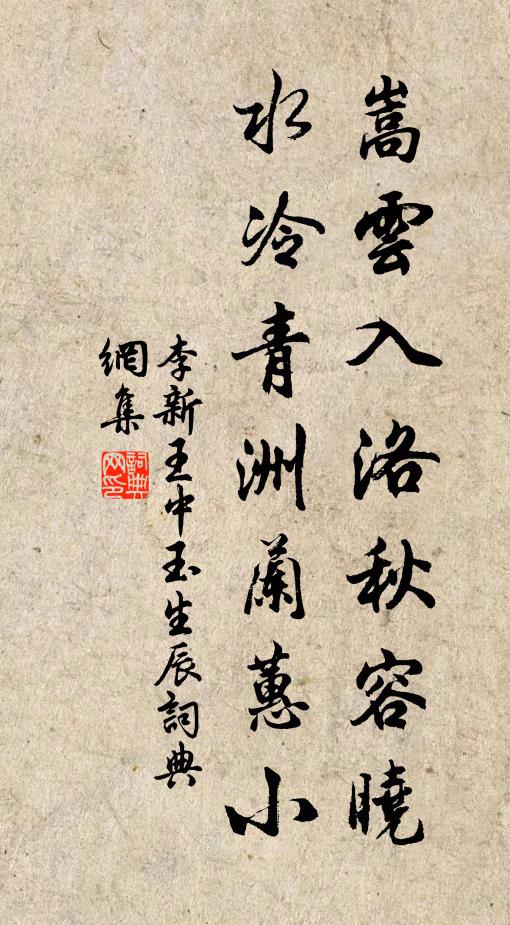 嵩雲入洛秋容曉
水冷青洲蘭蕙小
李新王中玉生辰詞典
網集
詞典網印